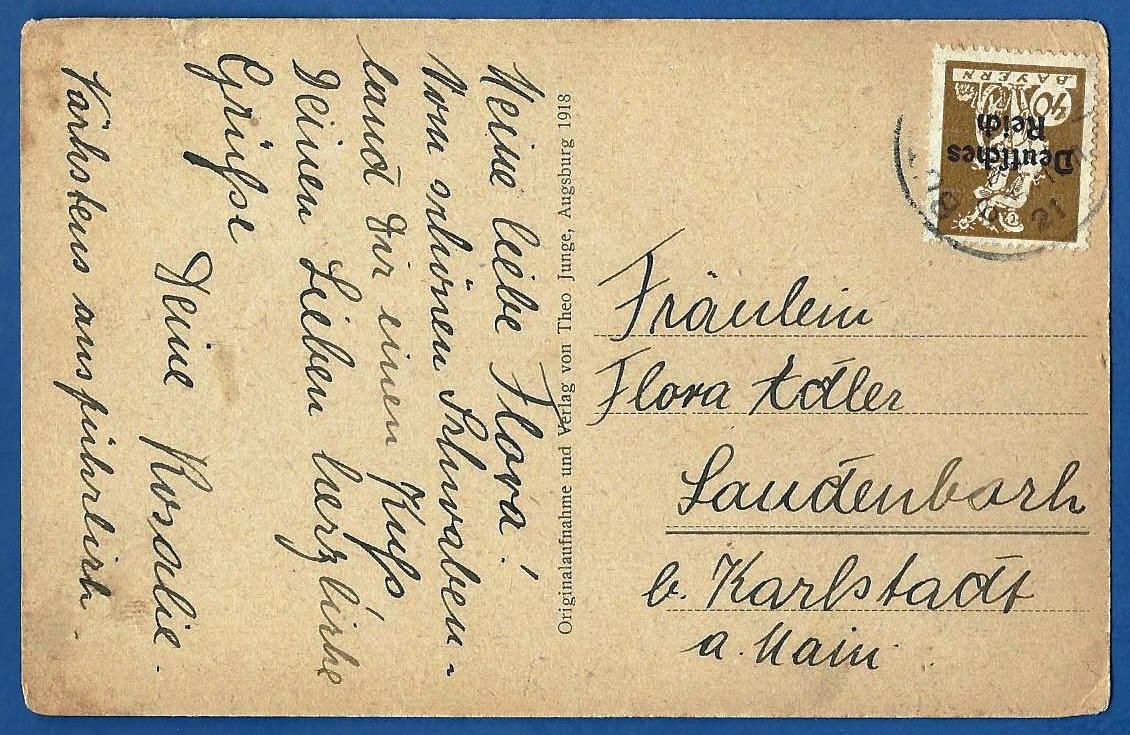 Meine liebe Flora!
Vom schönen Schwaben-
land Dir einen Kuss
Deinen Lieben herzliche
Grüsse
Deine Rosalie.
Nächstens ausführlich.
Originalaufnahme und Verlag von Theo Junge, Augsburg 1918
BAYERN
40
Deutsches
Reich
21
Fräulein
Flora Adler
Laudenbach
b. Karlstadt
a. Main